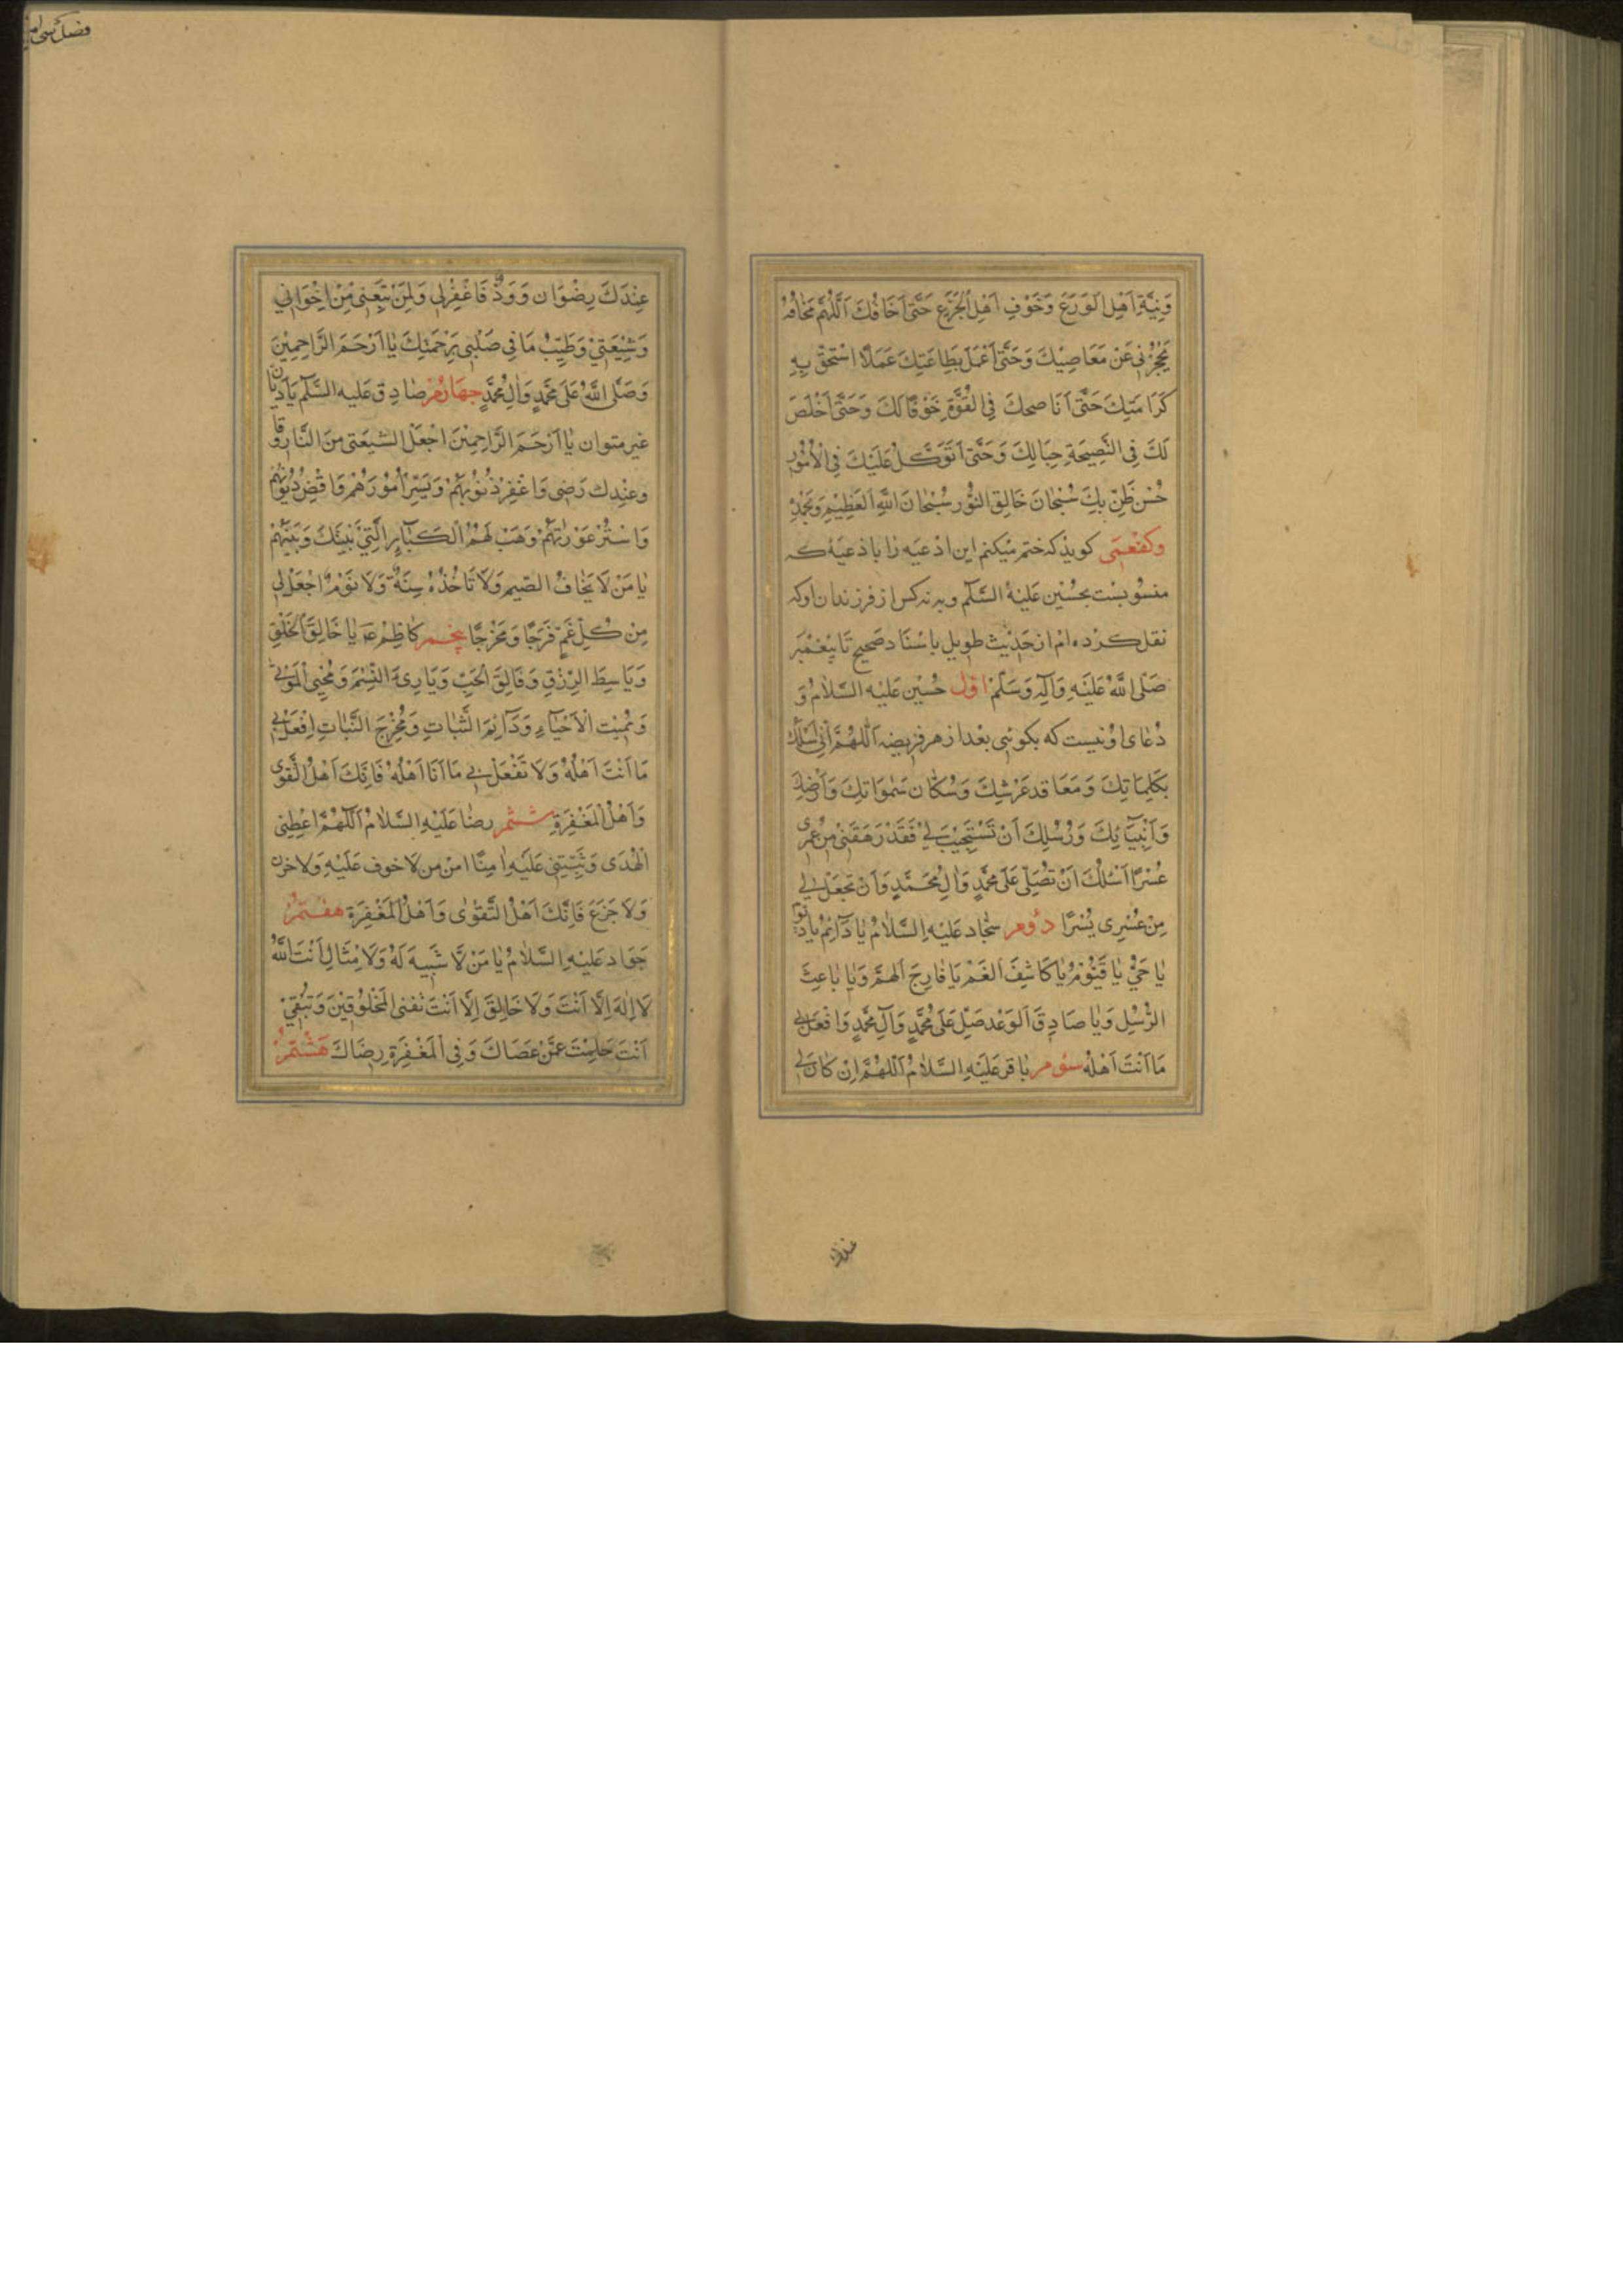 وَنِيَّةِ اَهْلِ الْوَرَعِ وَخَوْفِ اَهْلِ الْجَزَعِ حَتّى اَخَافُكَ اَللّهُمَّ مَخافَهً
يَحْجُزُنِى عَنْ مَعَاصِيْكَ وَحَتّى اَعْمَلَ بِطَاعَتِكَ عَمَلًا اسْتَحِقُّ بِهِ
كَرَامَتِكَ حَتّى اَنَاصحكَ فِى القُوَّةِ خَوْفًا لَكَ وَحَتّى اَخْلَصَ
لَكَ فِى النَّصِيْحَةِ حِبَالِكَ وَحَتّى اَتَوَكَّلَ عَلَيْكَ فِى الْاُمُوْرِ
حُسْنَ ظَنٍّ بِكَ سُبْحانَ خَالِقِ النُّوْرِ سُبْحانَ اللهِ العَظِيْمِ وَبِحَمْدِهِ
وكفعمى كويد كه ختم ميكنم اين ادعيه را باذعيه كه
منسوبست بحسين عَلَيْهِ السَّلَام وبر نه كس از فرزندان اوكه
نقل كرده ام از حديث طويل باسناد صحيح تا پيغمبر
صَلَّى اللهُ عَلَيْهِ وَآلِهِ وَسَلَّمْ اوّل حُسَيْن عَلَيْهِ السَّلامُ وَ
دُعاى اونيست كه بكوئى بعد از هر فريضه اَللّهُمَّ اِنّى اَسْئَلُكَ
بِكَلِمَاتِكَ وَمَعَاقِدِ عَرْشِكَ وَسُكّان سَموَاتِكَ وَاَرْضِكَ
وَاَنْبِيَآئِكَ وَرُسُلِكَ اَنْ تَسْتَجِيْبَ لِىْ فَقَدْ رَهَقَنِى مِنْ عُمرِى
عُسْرًا اَسْئَلُكَ اَنْ تُصَلِّىَ عَلى مُحَمَّدٍ وَآلِ مُحَمَّدٍ وَاَنْ تَجْعَلَ لِى
مِنْ عُسْرِى يُسْرًا دوُم سجّاد عَلَيْهِ السَّلَامُ يا دَآئِمُ يا دَيْمُوْمُ
يا حَىُّ يا قَيُّوْمُ يا كَاشِفَ الغَمِّ يَا فَارِجَ الهَمِّ وَيا بَاعِثَ
الرُّسُلِ وَيا صَادِقَ الْوَعْدِ صَلِّ عَلى مُحَمَّدٍ وَآلِ مُحَمَّدٍ وَافْعَلْ بِى
مَا اَنْتَ اَهْلُهُ سوُم باقر عَلَيْهِ السَّلامُ اَللّهُمَّ اِنْ كَانَ لِى
عندك
عِنْدَكَ رِضْوَان وَوُدٌّ فَاغْفِرْلِى وَلِمَنْ تَبِعَنِى مِنْ اِخْوَانِى
وَشِيْعَتِىْ وَطَيِّبْ مَا فِى صُلْبِى بِرَحْمَتِكَ يا اَرْحَمَ الرَّاحِمِيْنَ
وَصَلَّى اللهُ عَلى مُحَمَّدٍ وَآلِ مُحَمَّدٍ جهارُم صادِق عليه السَّلام يَا دَيّان
غير متوان يا اَرْحَمَ الرَّاحِمِيْنَ اجْعَلْ لشيعَتى مِنَ النَّار وقا
وعِنْدك رَضى وَاغْفِرْ ذُنُوْبَهُمْ وَيَسِّرْ اُمُوْرَهُمْ وَاقْضِ دُيُوْنَهُمْ
وَاسْتُرْ عَوْرَاتِهِمْ وَهَبْ لَهُمُ الْكَبَآئِرَ الَّتِى بَيْنَكَ وَبَيْنَهُمْ
يا مَنْ لَا يَخَافُ الضّيم وَلَا تَاخُذُهُ سِنَةٌ وَلَا نَوْمٌ اجْعَلْ لِى
مِنْ كُلِّ غَمٍّ فَرَجًا وَمَخْرَجًا پنجم كاظم عَ يا خَالِقَ الْخَلْقِ
وَيَا بَاسِطَ الرِّزْقِ وَفَالِقَ الْحَبِّ وَيَا بَارِىَ النَّسَمِ وَمُحْيِىَ الْمَوْتى
وَمُمِيْتَ الْاَحْيَآءِ وَدَآئِمَ الثَّبَاتِ وَمُخْرِجَ النَّبَاتِ اِفْعَلْ بِى
مَا اَنْتَ اَهْلُهُ وَلَا تَفْعَلْ بِى مَا اَنَا اَهْلُهُ فَاِنَّكَ اَهْلُ التَّقْوى
وَاَهْلُ الْمَغْفِرَةِ ششم رضا عَلَيْهِ السَّلامُ اَللّهُمَّ اعْطِنِى
الْهُدَى وَثَبِّتْنِى عَلَيْهِ امِنًا امن من لا خوف عَلَيْهِ وَلا حزن
وَلَا جَزَعَ فَاِنَّكَ اَهْلُ التَّقْوى وَاَهْلُ الْمَغْفِرَةِ هفتم
جَوَاد عَلَيْهِ السَّلَامُ يا مَنْ لَا شَبِيهَ لَهُ وَلَا مِثَالَ اَنْتَ اللهُ
لَا اِلهَ اِلَّا اَنْتَ وَلَا خَالِقَ اِلَّا اَنْتَ تُفنى الْمَخْلُوْقِيْنَ وَتَبْقِىْ
اَنْتَ حَلِمْتَ عَمَّنْ عَصَاكَ وَفِى الْمَغْفِرَةِ رِضَاكَ هشتم